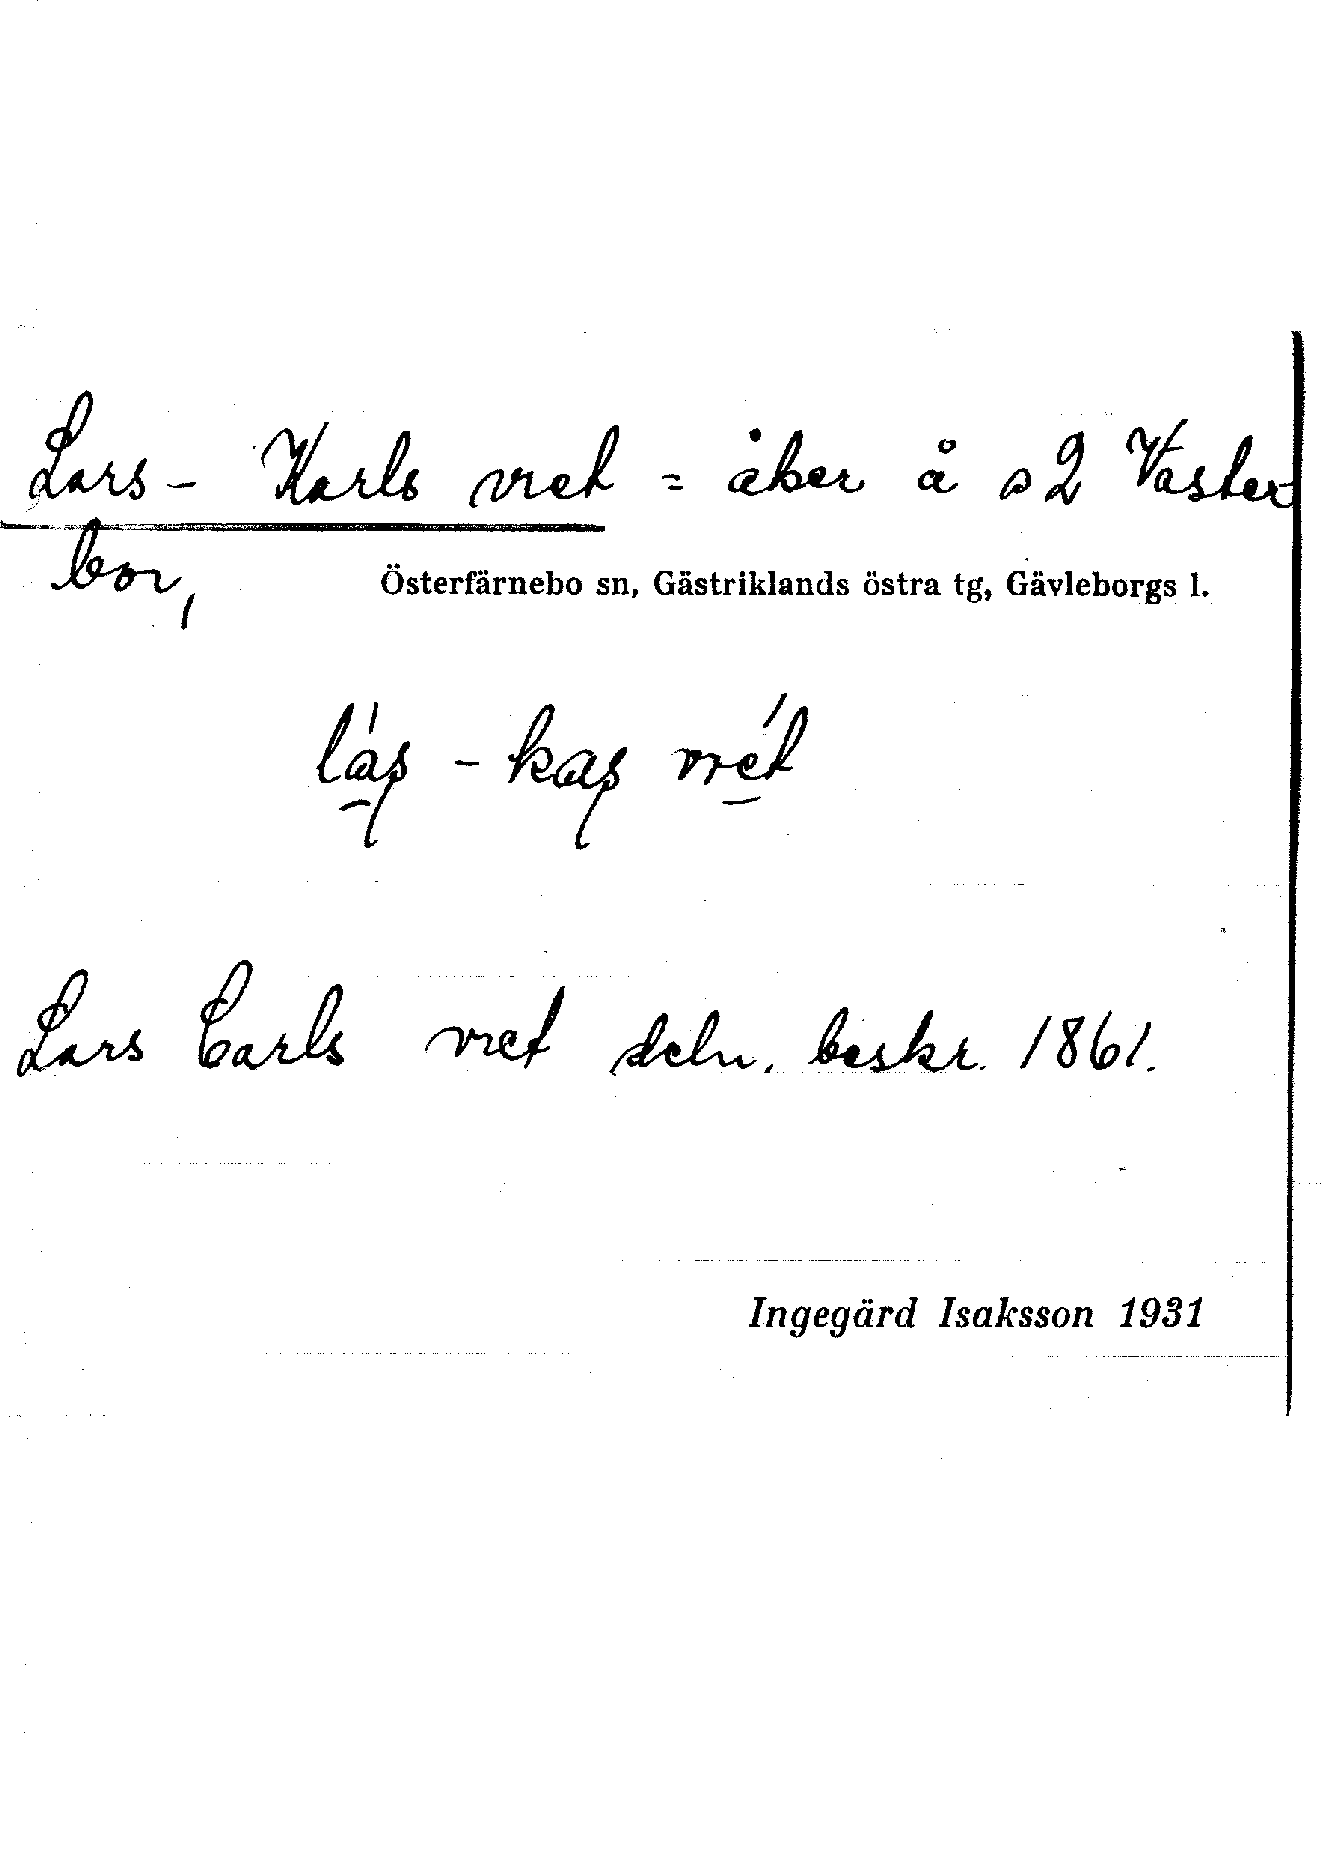 Lars-Karls vret = åker å s 2 Väster
bor,
Österfärnebo sn, Gästriklands östra tg, Gävleborgs l.
láʂ - kaʂ vrét
Lars Carls vret deln. beskr. 1861.
Ingegärd Isaksson 1931